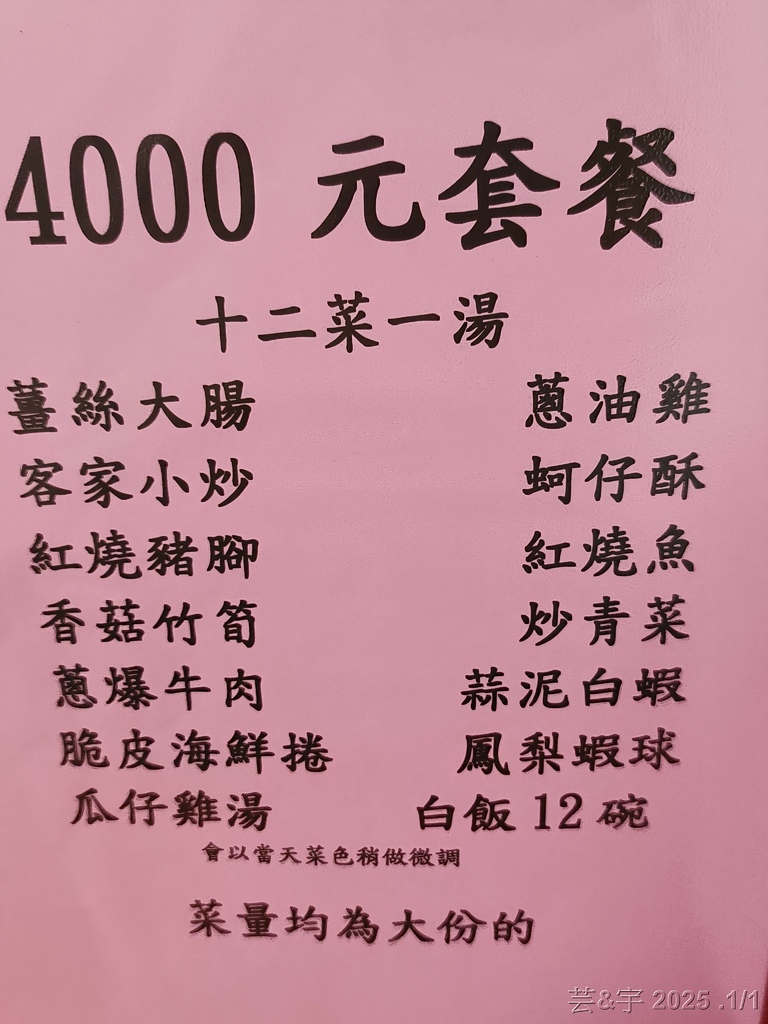 4000 元套餐
十二菜一湯
薑絲大腸 蔥油雞
客家小炒 蚵仔酥
紅燒豬腳 紅燒魚
香菇竹筍 炒青菜
蔥爆牛肉 蒜泥白蝦
脆皮海鮮捲 鳳梨蝦球
瓜仔雞湯 白飯 12 碗
會以當天菜色稍做微調
菜量均為大份的
芸&宇 2025 .1/1